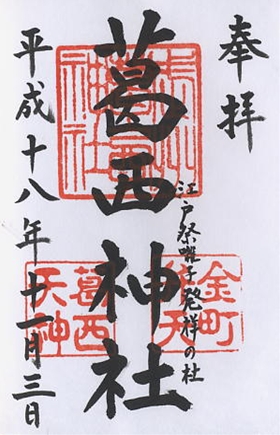 奉拝
江戸祭囃子発祥の杜
葛西神社
平成十八年十一月三日
金町
葛西
天神